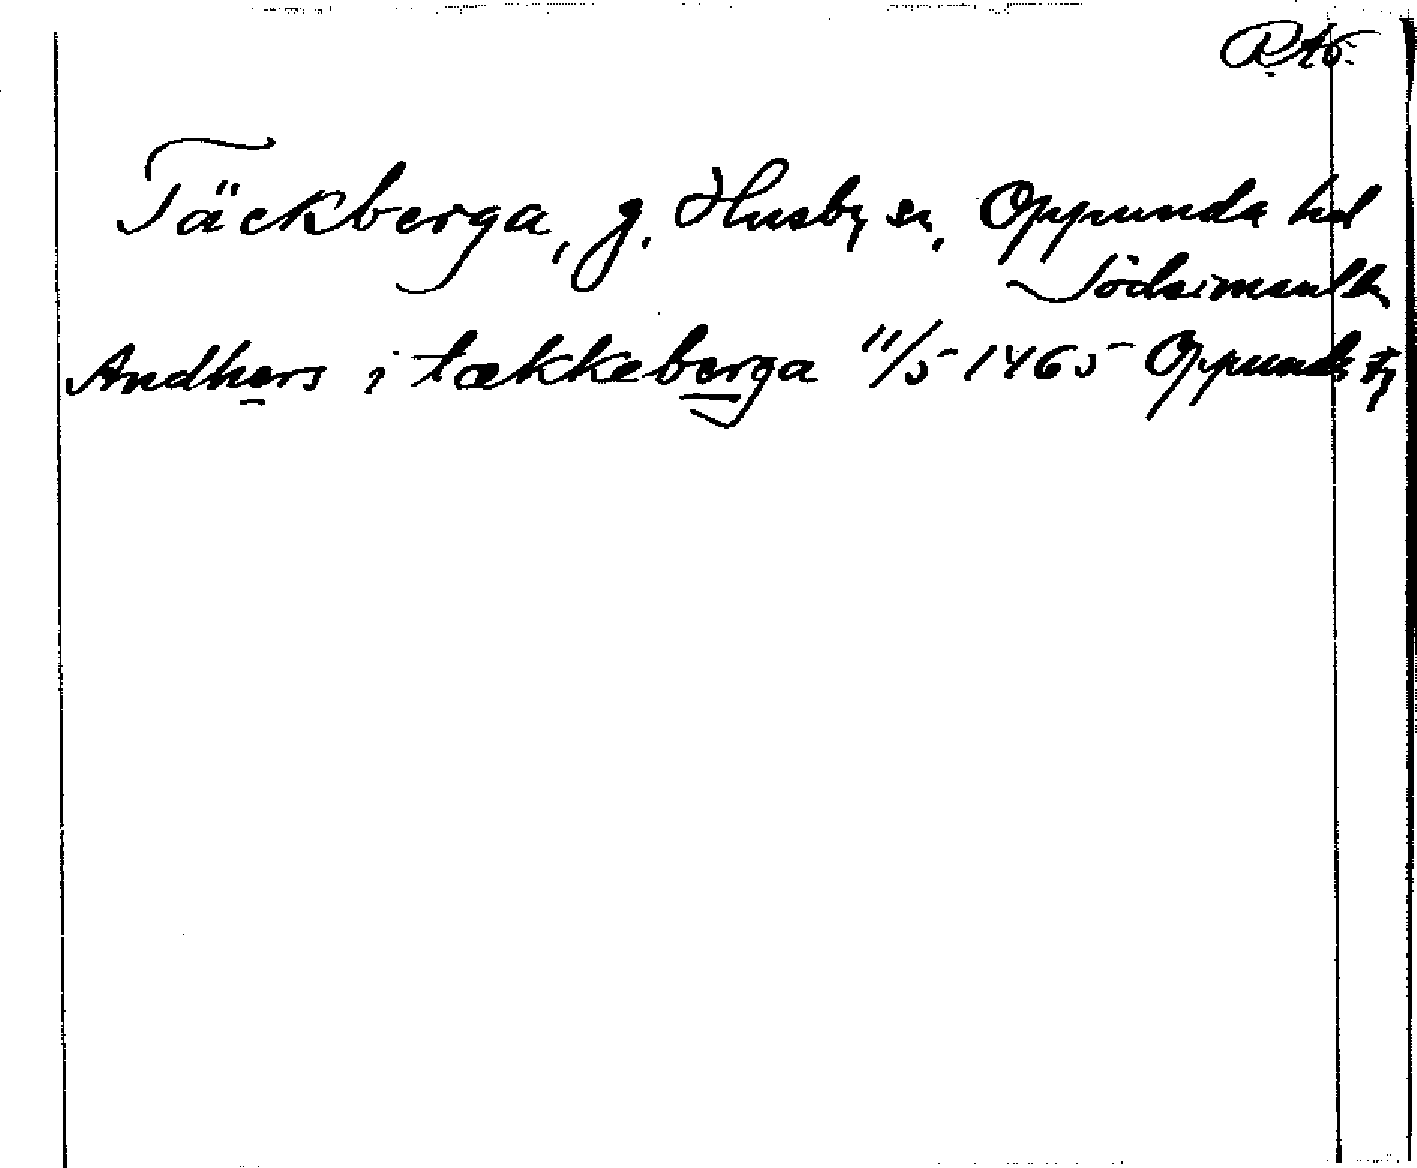 Täckberga, g. Husby sn, Oppunda hd
Södermanlb
Andhers i tækkeberga 11/5 1465 Oppunda